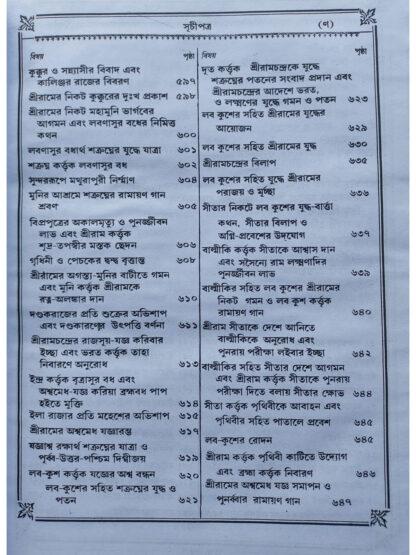 সূচীপত্র
(ণ)
বিষয় পৃষ্ঠা
কুক্কুর ও সন্ন্যাসীর বিবাদ এবং
কালিঞ্জর রাজের বিবরণ ৫৯৭
শ্রীরামের নিকট কুক্কুরের দুঃখ প্রকাশ ৫৯৮
শ্রীরামের নিকট মহামুনি ভার্গবের
আগমন এবং লবণাসুর বধের নিমিত্ত
কথন ৬০০
লবণাসুর বধার্থ শত্রুঘ্নের যুদ্ধে যাত্রা ৬০১
শত্রুঘ্ন কর্ত্তৃক লবণাসুর বধ ৬০২
সুন্দররূপে মথুরাপুরী নির্ম্মাণ ৬০৪
মুনির আশ্রমে শত্রুঘ্নের রামায়ণ গান
শ্রবণ ৬০৫
বিপ্রপুত্রের অকালমৃত্যু ও পুনর্জ্জীবন
লাভ এবং শ্রীরাম কর্ত্তৃক
শূদ্র-তপস্বীর মস্তক ছেদন ৬০৬
গৃধিনী ও পেচকের দ্বন্দ্ব বৃত্তান্ত ৬০৮
শ্রীরামের অগস্ত্য-মুনির বাটীতে গমন
এবং মুনি কর্ত্তৃক শ্রীরামকে
রত্ন-অলঙ্কার দান ৬১০
দণ্ডকরাজের প্রতি শুক্রের অভিশাপ
এবং দণ্ডকারণ্যের উৎপত্তি বর্ণনা ৬১১
শ্রীরামচন্দ্রের রাজসূয়-যজ্ঞ করিবার
ইচ্ছা এবং ভরত কর্ত্তৃক তাহা
নিবারণে অনুরোধ ৬১৩
ইন্দ্র কর্ত্তৃক বৃত্রাসুর বধ এবং
অশ্বমেধ-যজ্ঞ করিয়া ব্রহ্মবধ পাপ
হইতে মুক্তি ৬১৪
ইলা রাজার প্রতি মহেশের অভিশাপ ৬১৫
শ্রীরামের অশ্বমেধ যজ্ঞারম্ভ ৬১৭
যজ্ঞাশ্ব রক্ষার্থ শত্রুঘ্নের যাত্রা ও
পূর্ব্ব-উত্তর-পশ্চিম দিগ্বীজয় ৬১৯
লব-কুশ কর্ত্তৃক যজ্ঞের অশ্ব বন্ধন ৬২০
লব-কুশের সহিত শত্রুঘ্নের যুদ্ধ ও
পতন ৬২১
বিষয় পৃষ্ঠা
দূত কর্ত্তৃক শ্রীরামচন্দ্রকে যুদ্ধে
শত্রুঘ্নের পতনের সংবাদ প্রদান এবং
শ্রীরামচন্দ্রের আদেশে ভরত,
ও লক্ষ্মণের যুদ্ধে গমন ও পতন ৬২৩
লব কুশের সহিত শ্রীরামের যুদ্ধের
আয়োজন ৬২৯
লব কুশের সহিত শ্রীরামের যুদ্ধ ৬৩০
শ্রীরামচন্দ্রের বিলাপ ৬৩৫
লব কুশের সহিত যুদ্ধে শ্রীরামের
পরাজয় ও মূর্চ্ছা ৬৩৬
সীতার নিকটে লব কুশের যুদ্ধ-বার্ত্তা
কথন, সীতার বিলাপ ও
অগ্নি-প্রবেশের উদযোগ ৬৩৭
বাল্মীকি কর্ত্তৃক সীতাকে আশ্বাস দান
এবং সসৈন্যে রাম লক্ষ্মণাদির
পুনর্জ্জীবন লাভ ৬৩৯
বাল্মীকির সহিত লব কুশের শ্রীরামের
নিকট গমন ও লব কুশ কর্ত্তৃক
রামায়ণ গান ৬৪০
শ্রীরাম সীতাকে দেশে আনিতে
বাল্মীকিকে অনুরোধ এবং
পুনরায় পরীক্ষা লইবার ইচ্ছা ৬৪২
বাল্মীকির সহিত সীতার দেশে আগমন
এবং শ্রীরাম কর্ত্তৃক সীতাকে পুনরায়
পরীক্ষা দিতে বলায় সীতার ক্ষোভ ৬৪৪
সীতা কর্ত্তৃক পৃথিবীকে আবাহন এবং
পৃথিবীর সহিত পাতালে প্রবেশ ৬৪৫
লব-কুশের রোদন ৬৪৫
শ্রীরাম কর্ত্তৃক পৃথিবী কাটিতে উদ্যোগ
এবং ব্রহ্মা কর্ত্তৃক নিবারণ ৬৪৬
শ্রীরামের অশ্বমেধ যজ্ঞ সমাপন ও
পুনর্ব্বার রামায়ণ গান ৬৪৭